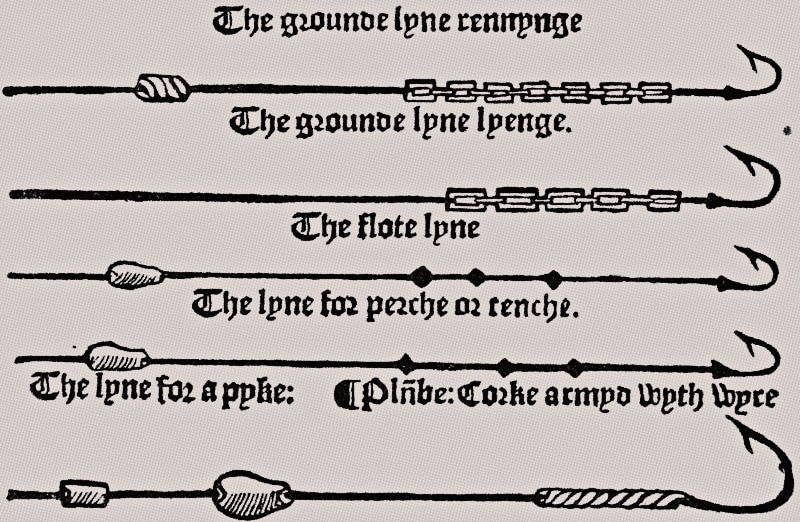 The grounde lyne rennynge
The grounde lyne lyenge.
The flote lyne
The lyne for perche or tenche.
The lyne for a pyke: ¶Plñbe: Corke armyd wyth wyre